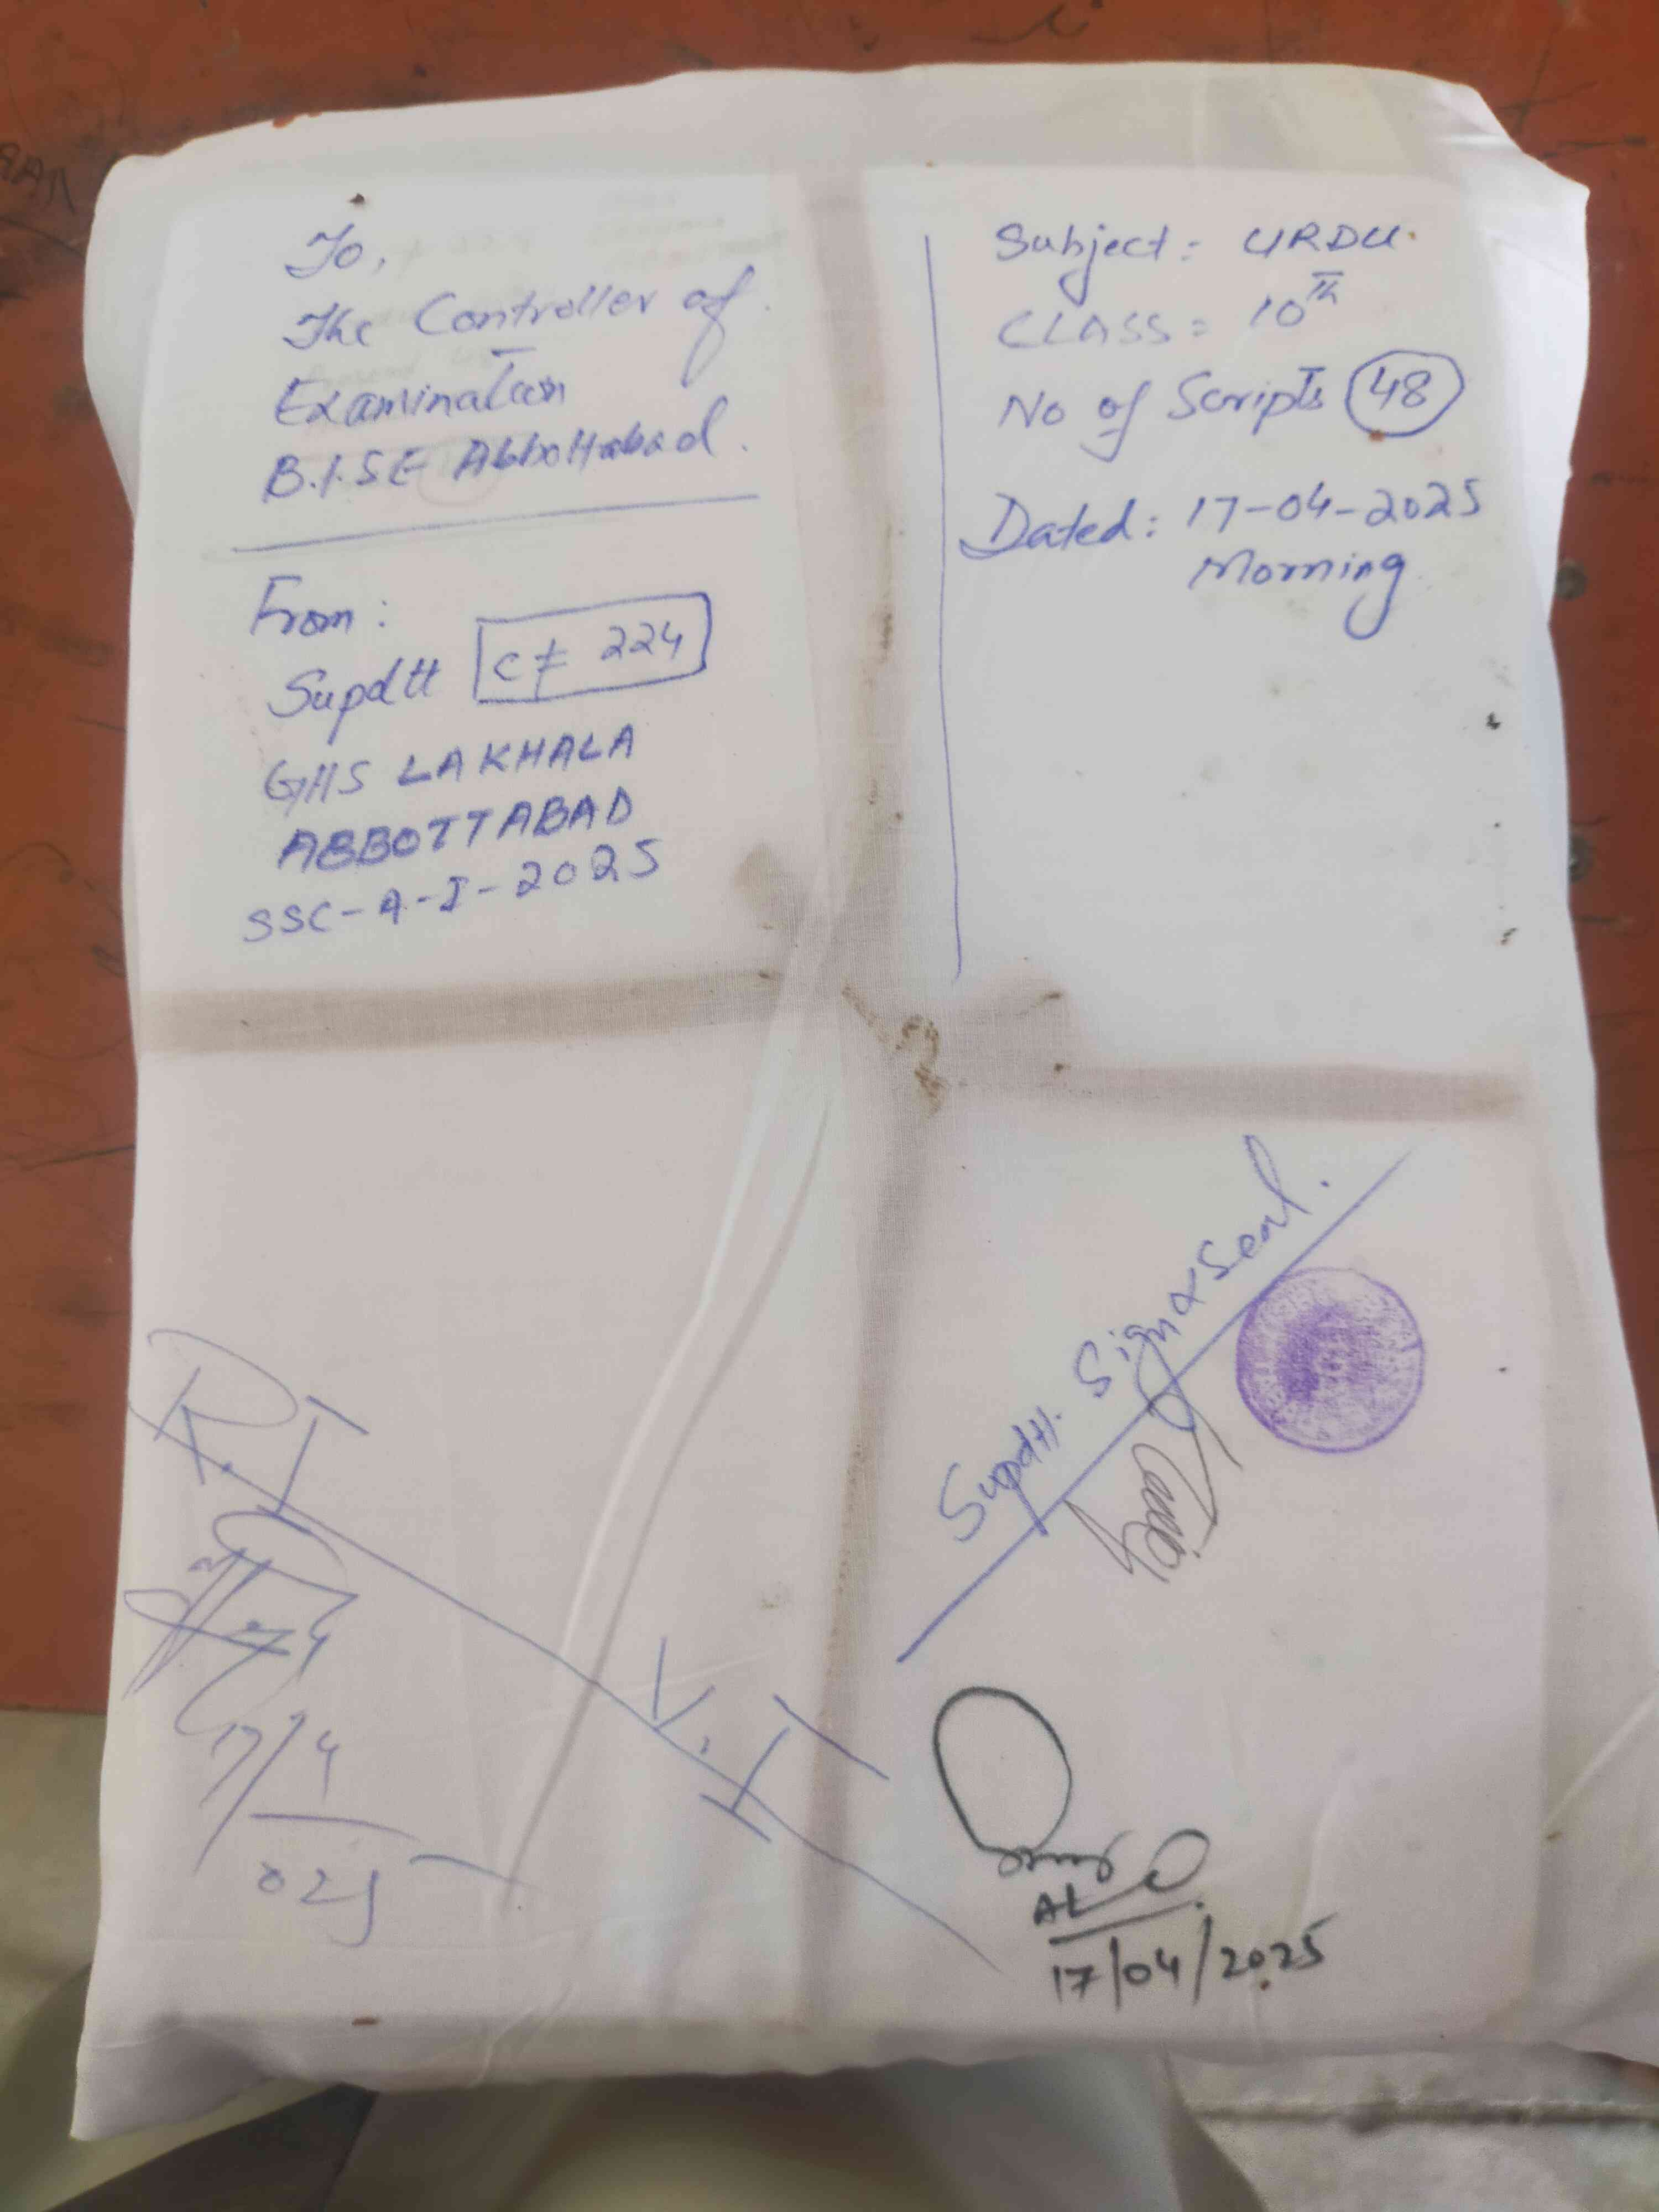 To,
The Controller of
Examination
B.I.SE Abbottabad.
From:
Supdtt C≠ 224
GHS LAKHALA
ABBOTTABAD
SSC-A-I-2025
Subject: URDU
CLASS= 10th
No of Scripts 48
Dated: 17-04-2025
Morning
Supdtt. Sign & Seal.
R.I
17/4
025
V.I
17/04/2025